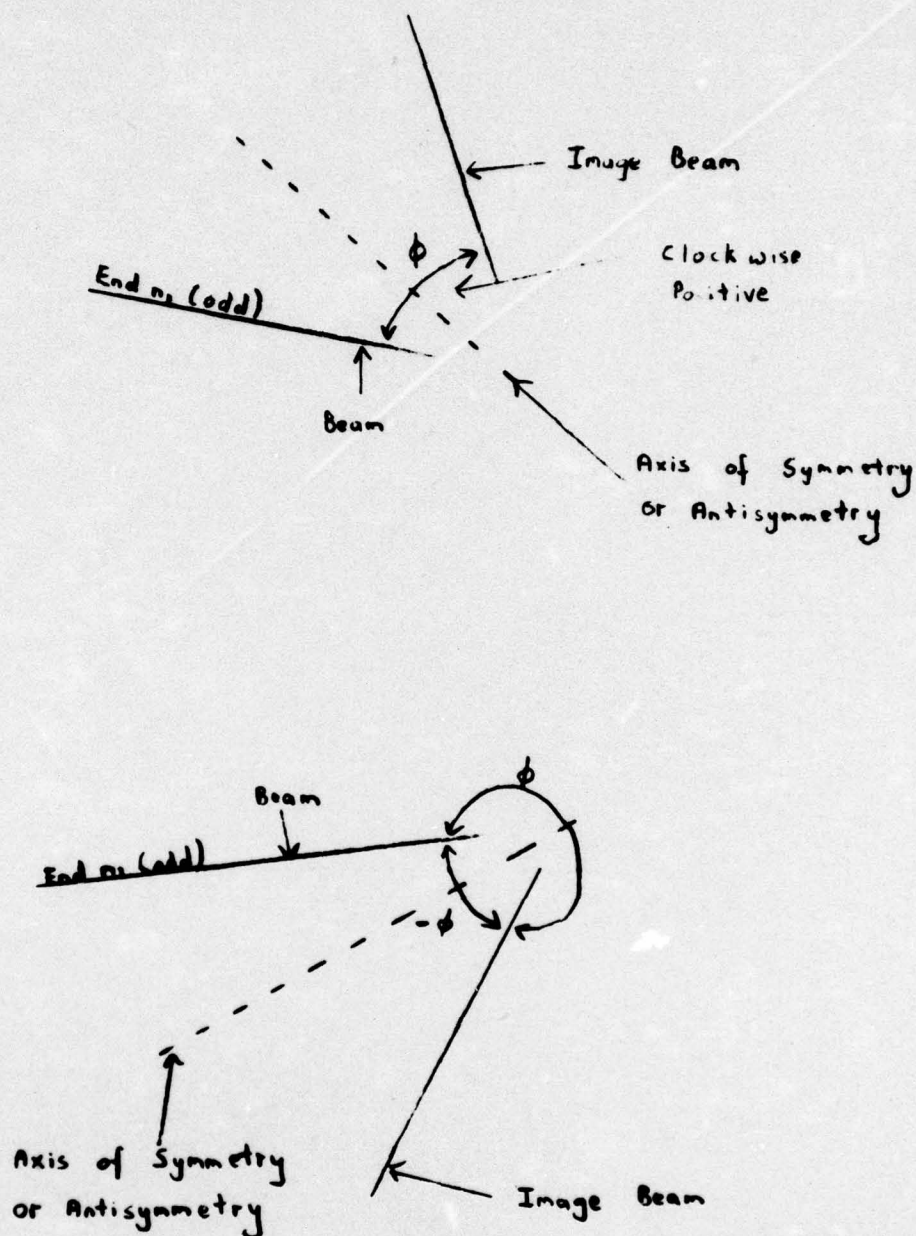 Image Beam
ϕ
Clockwise
Positive
End n₁ (odd)
Beam
Axis of Symmetry
or Antisymmetry
ϕ
Beam
End n₁ (odd)
-ϕ
Axis of Symmetry
or Antisymmetry
Image Beam